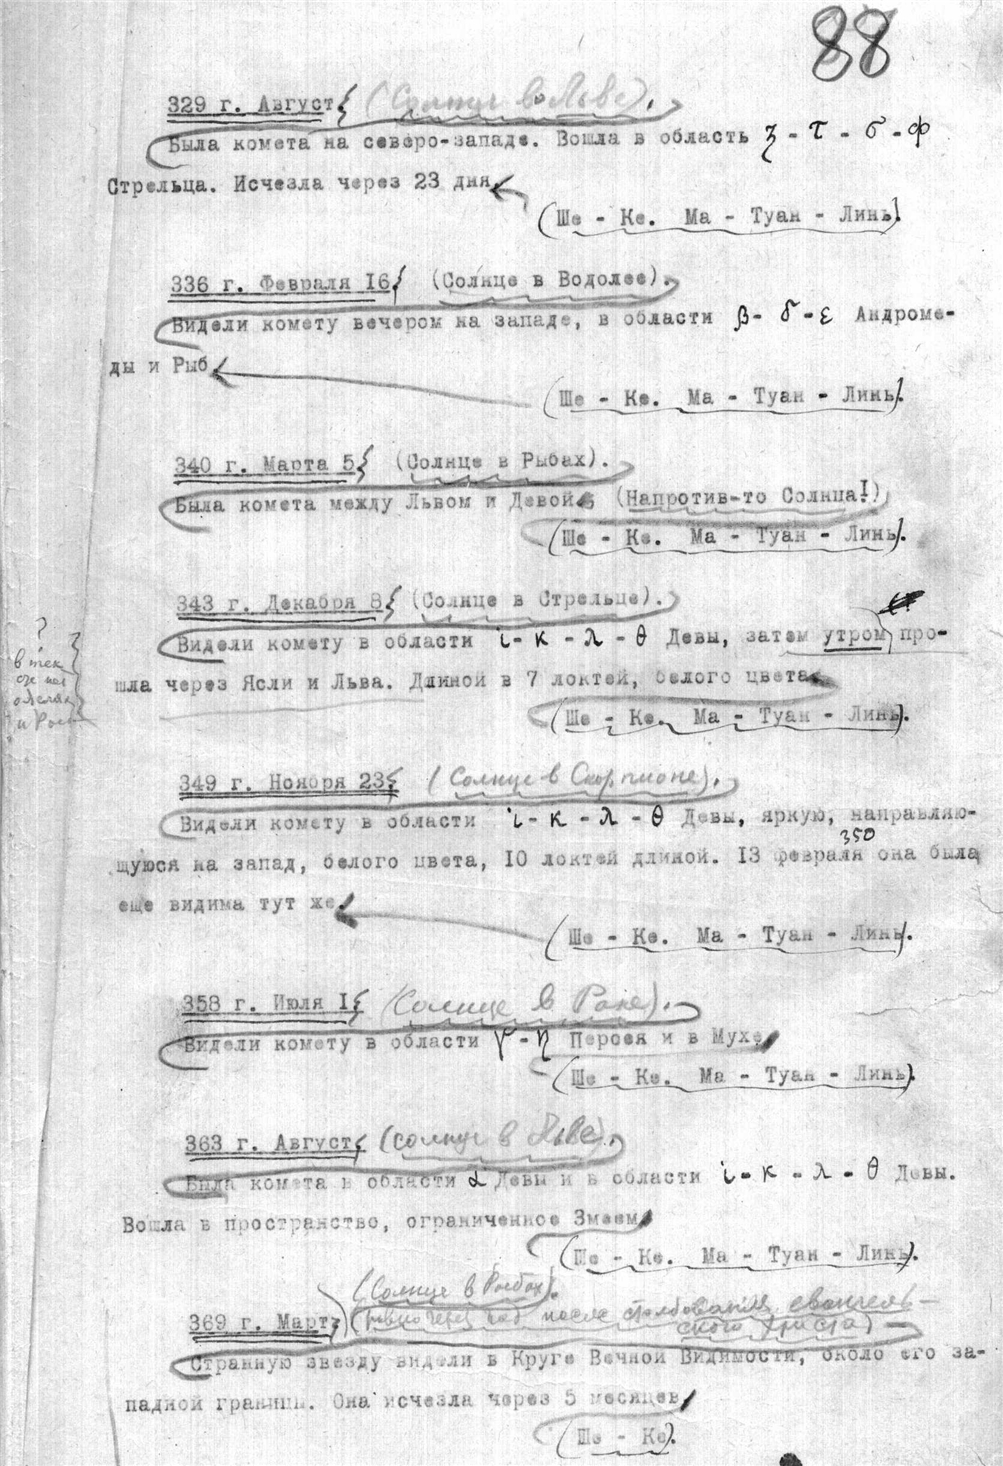 88
329 г. Август (Солнце в Льве).
Была комета на северо-западе. Вошла в область ζ - τ - σ - φ
Стрельца. Исчезла через 23 дня
(Ше - Ке. Ма - Туан - Линь).
336 г. Февраля I6 (Солнце в Водолее).
Видели комету вечером на западе, в области β - δ - ε Андроме-
ды и Рыб
(Ше - Ке. Ма - Туан - Линь).
340 г. Марта 5 (Солнце в Рыбах).
Была комета между Львом и Девой (Напротив-то Солнца!)
(Ше - Ке. Ма - Туан - Линь).
343 г. Декабря 8 (Солнце в Стрельце).
Видели комету в области ι - κ - λ - θ Девы, затем утром про-
шла через Ясли и Льва. Длиной в 7 локтей, белого цвета
(Ше - Ке. Ма - Туан - Линь).
?
в
и
349 г. Ноября 23 (Солнце в Скорпионе).
Видели комету в области ι - κ - λ - θ Девы, яркую, направляю-
350
щуюся на запад, белого цвета, I0 локтей длиной. I3 февраля она была
еще видима тут же.
(Ше - Ке. Ма - Туан - Линь).
358 г. Июля I (Солнце в Раке).
Видели комету в области γ - η Персея и в Мухе
(Ше - Ке. Ма - Туан - Линь).
363 г. Август (Солнце в Льве).
Была комета в области α Девы и в области ι - κ - λ - θ Девы.
Вошла в пространство, ограниченное Змеем
(Ше - Ке. Ма - Туан - Линь).
(Солнце в Рыбах).
369 г. Март (ровно через год после столбования евангель-
ского Христа)
Странную звезду видели в Круге Вечной Видимости, около его за-
падной границы. Она исчезла через 5 месяцев
(Ше - Ке).